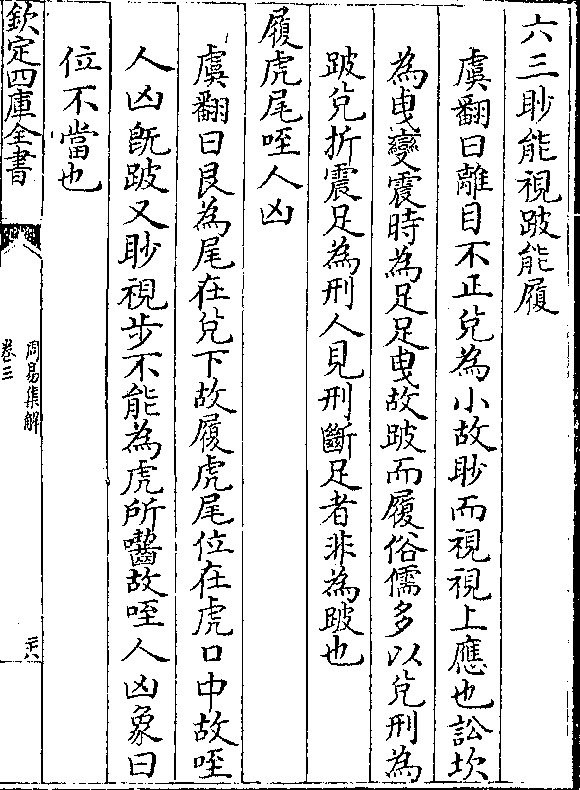 六三眇能視跛能履
虞翻曰離目不正兌為小故眇而視視上應也訟坎
為曳變震時為足足曳故跛而履俗儒多以兌刑為
跛兌折震足為刑人見刑斷足者非為跛也
履虎尾咥人凶
虞翻曰艮為尾在兌下故履虎尾位在虎口中故咥
人凶既跛又眇視步不能為虎所齧故咥人凶象曰
位不當也
欽定四庫全書
周易集解
卷三
二十六